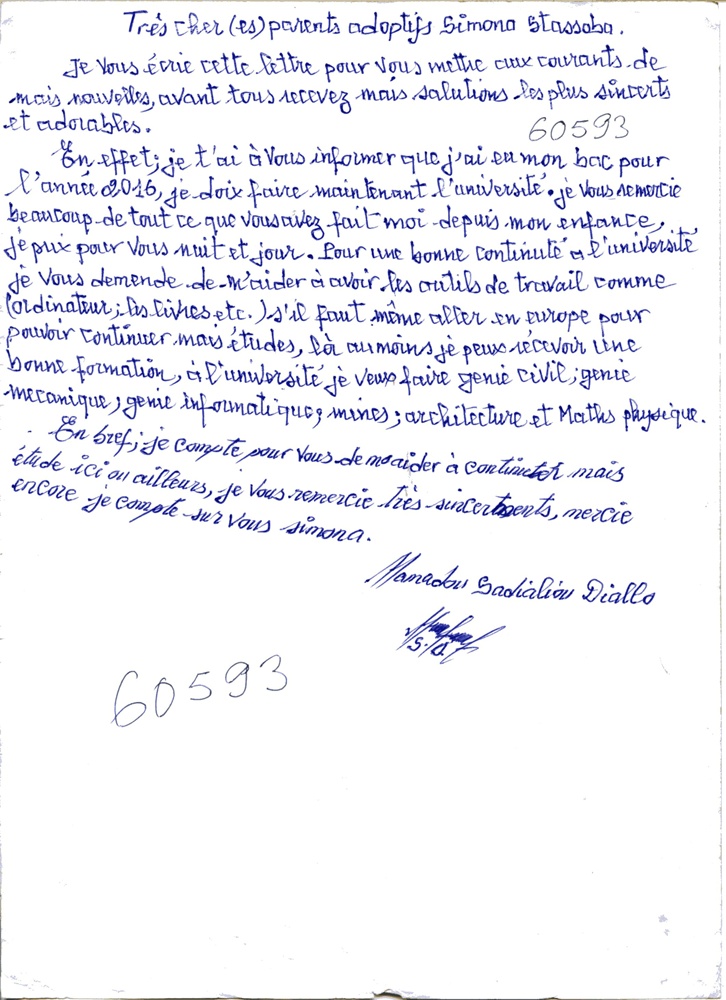 Très cher (es) parents adoptifs Simona Stassoba.
Je vous écrie cette lettre pour vous mettre aux courants de
mais nouvelles, avant tous recevez mais salutions les plus sincerts
et adorables.
60593
En effet; je t'ai à vous informer que j'ai eu mon bac pour
l'année 2016, je doix faire maintenant l'université. je vous remercie
beaucoup de tout ce que vous avez fait moi depuis mon enfance,
je prix pour vous nuit et jour. Pour une bonne continuté à l'université
je vous demende de m'aider à avoir les outils de travail comme
(ordinateur; les livres etc.) s'il faut même aller en europe pour
pouvoir continuer mais études, là au moins je peux récevoir une
bonne formation, à l'université je veux faire genie civil; genie
mecanique; genie informatique; mines; architecture et Maths physique.
En bref; je compte pour vous de m'aider à continuer mais
étude ici ou ailleurs, je vous remercie très sincerments, mercie
encore je compte sur vous simona.
Mamadou Sadialiou Diallo
S.D.
60593